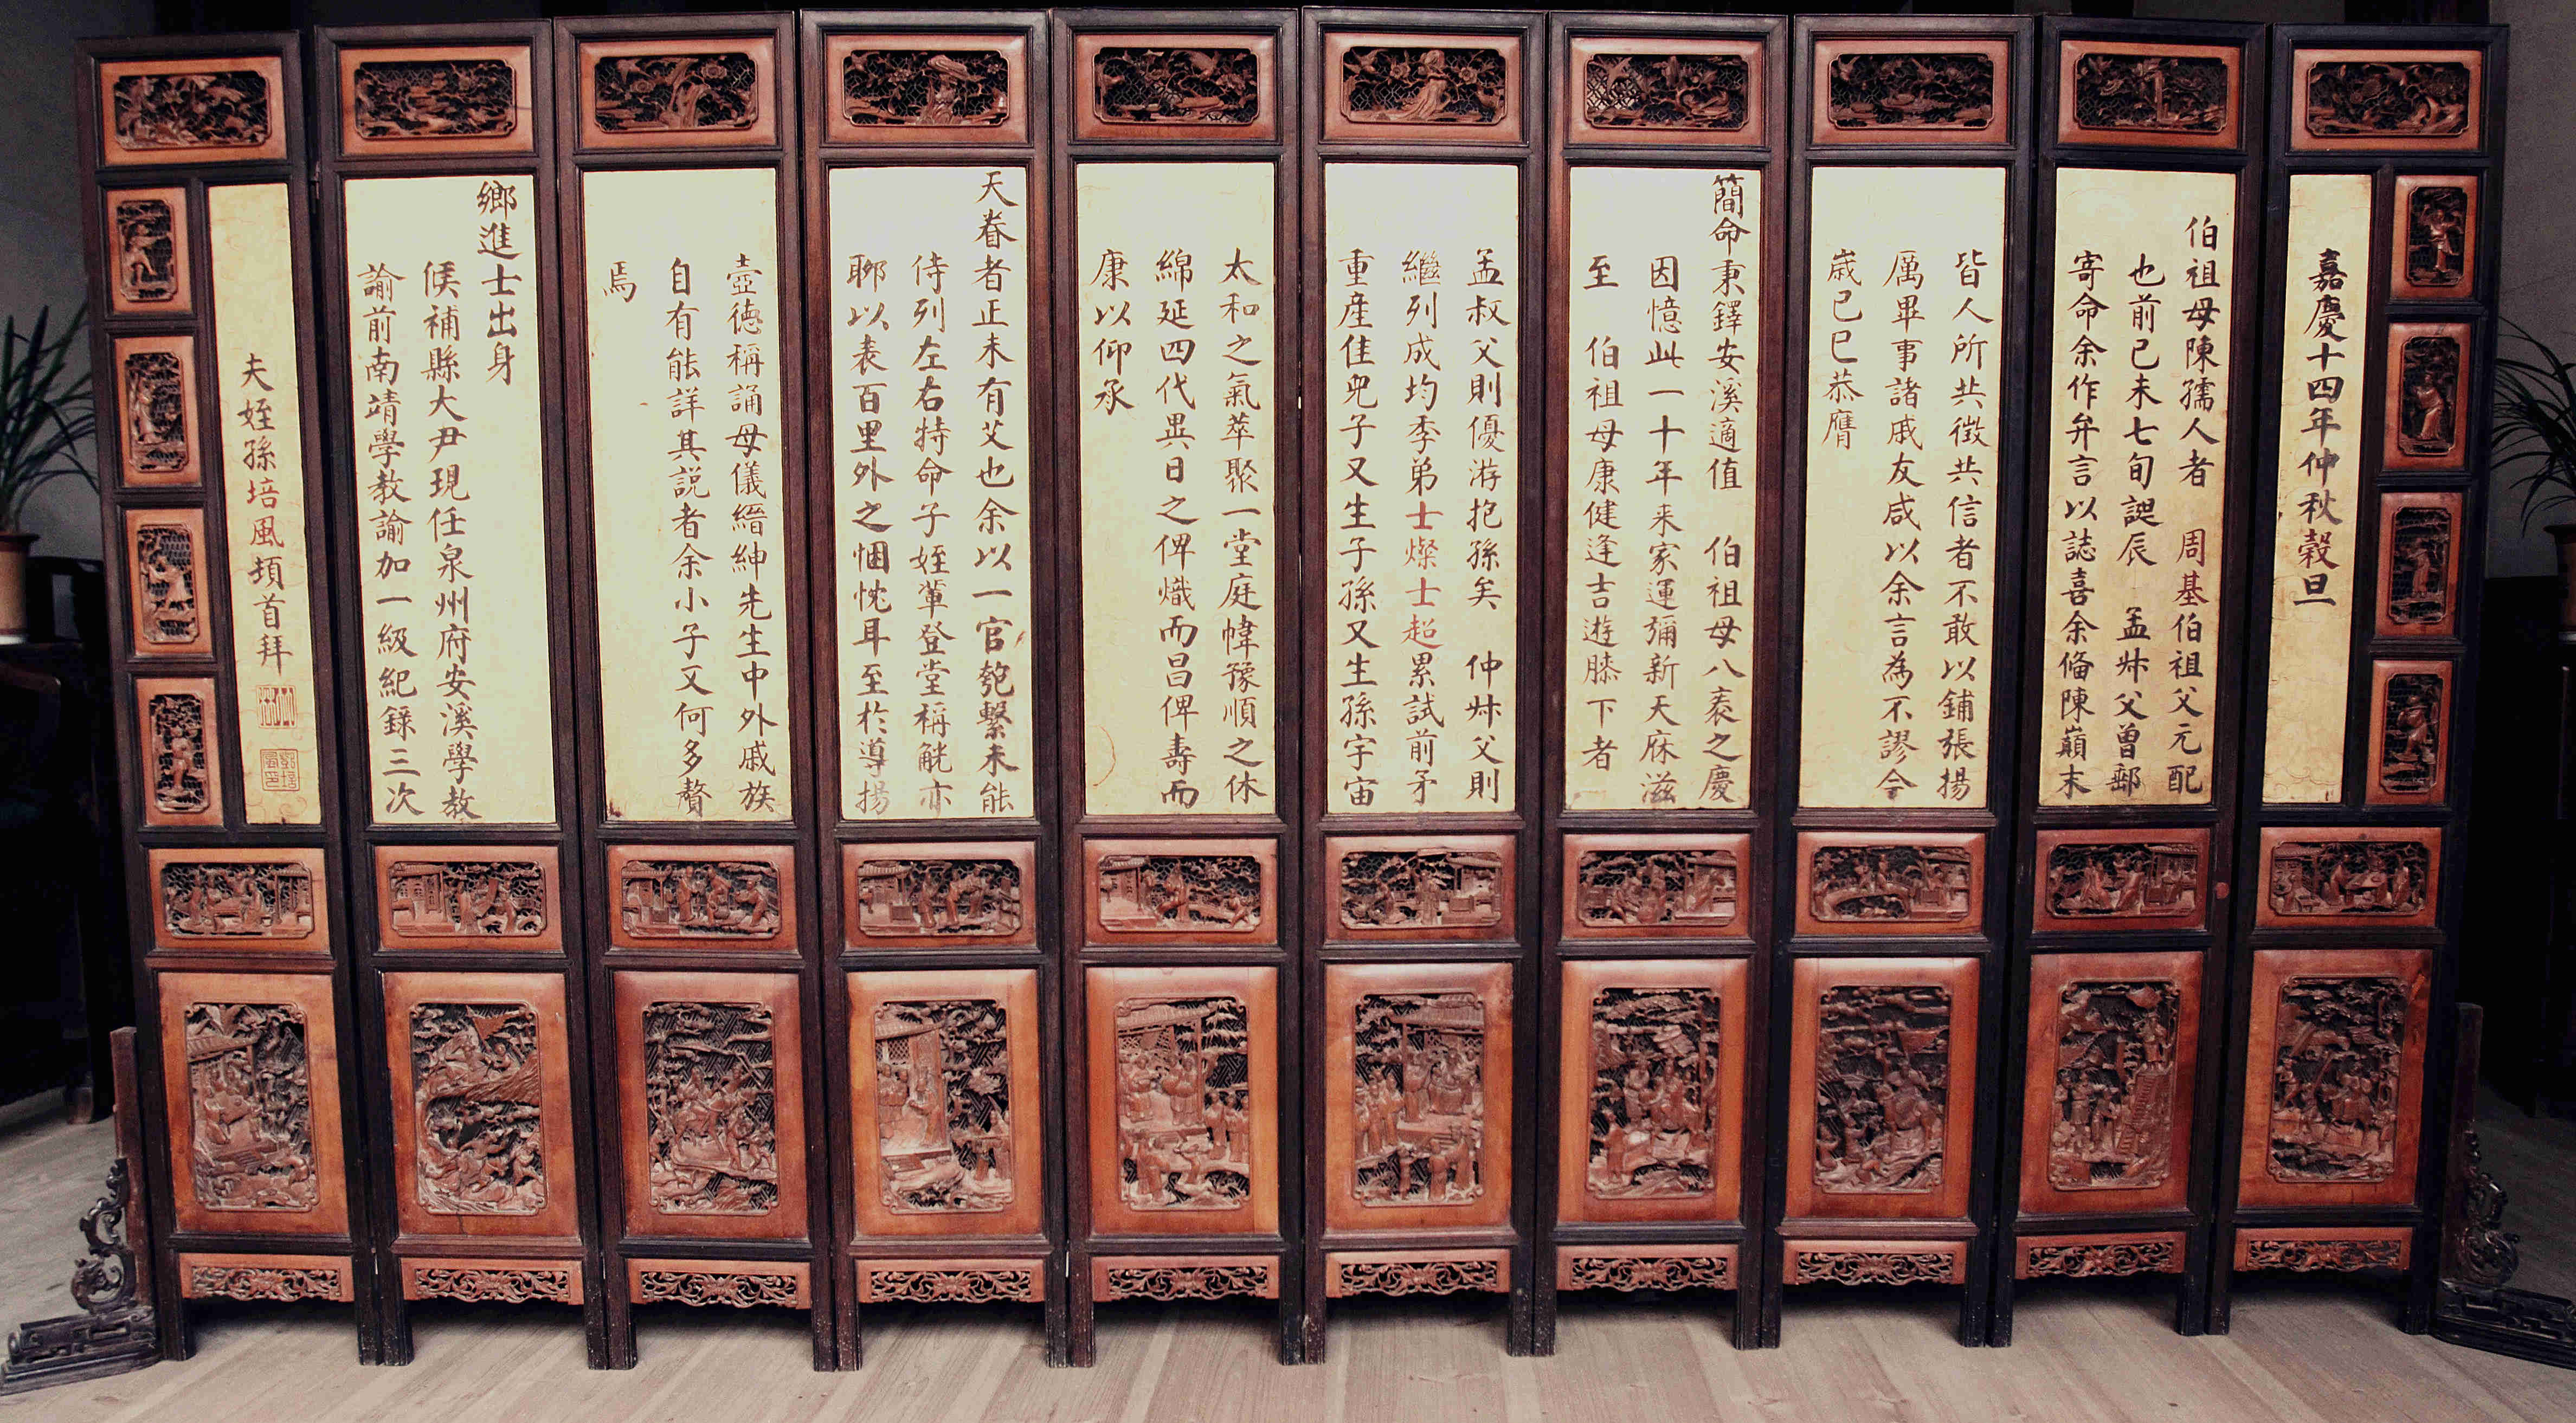 嘉慶十四年仲秋穀旦
伯祖母陳孺人者 周基伯祖父元配
也前己未七旬誕辰 孟叔父曾郵
寄命余作弁言以誌喜余偹陳巔末
皆人所共徵共信者不敢以鋪張揚
厲畢事諸戚友咸以余言為不謬今
歲己巳恭膺
簡命秉鐸安溪適值 伯祖母八袠之慶
因憶此一十年来家運彌新天庥滋
至 伯祖母康健逢吉遊膝下者
孟叔父則優游抱孫矣 仲叔父則
繼列成均季弟士燦士超累試前矛
重產佳兒子又生子孫又生孫宇宙
太和之氣萃聚一堂庭幃豫順之休
綿延四代異日之俾熾而昌俾壽而
康以仰承
天眷者正未有艾也余以一官匏繫未能
侍列左右特命子姪輩登堂稱觥亦
聊以表百里外之悃忱耳至於導揚
壼德稱誦母儀縉紳先生中外戚族
自有能詳其說者余小子又何多贅
焉
鄉進士出身
候補縣大尹現任泉州府安溪學教
諭前南靖學教諭加一級紀錄三次
夫姪孫培風頓首拜